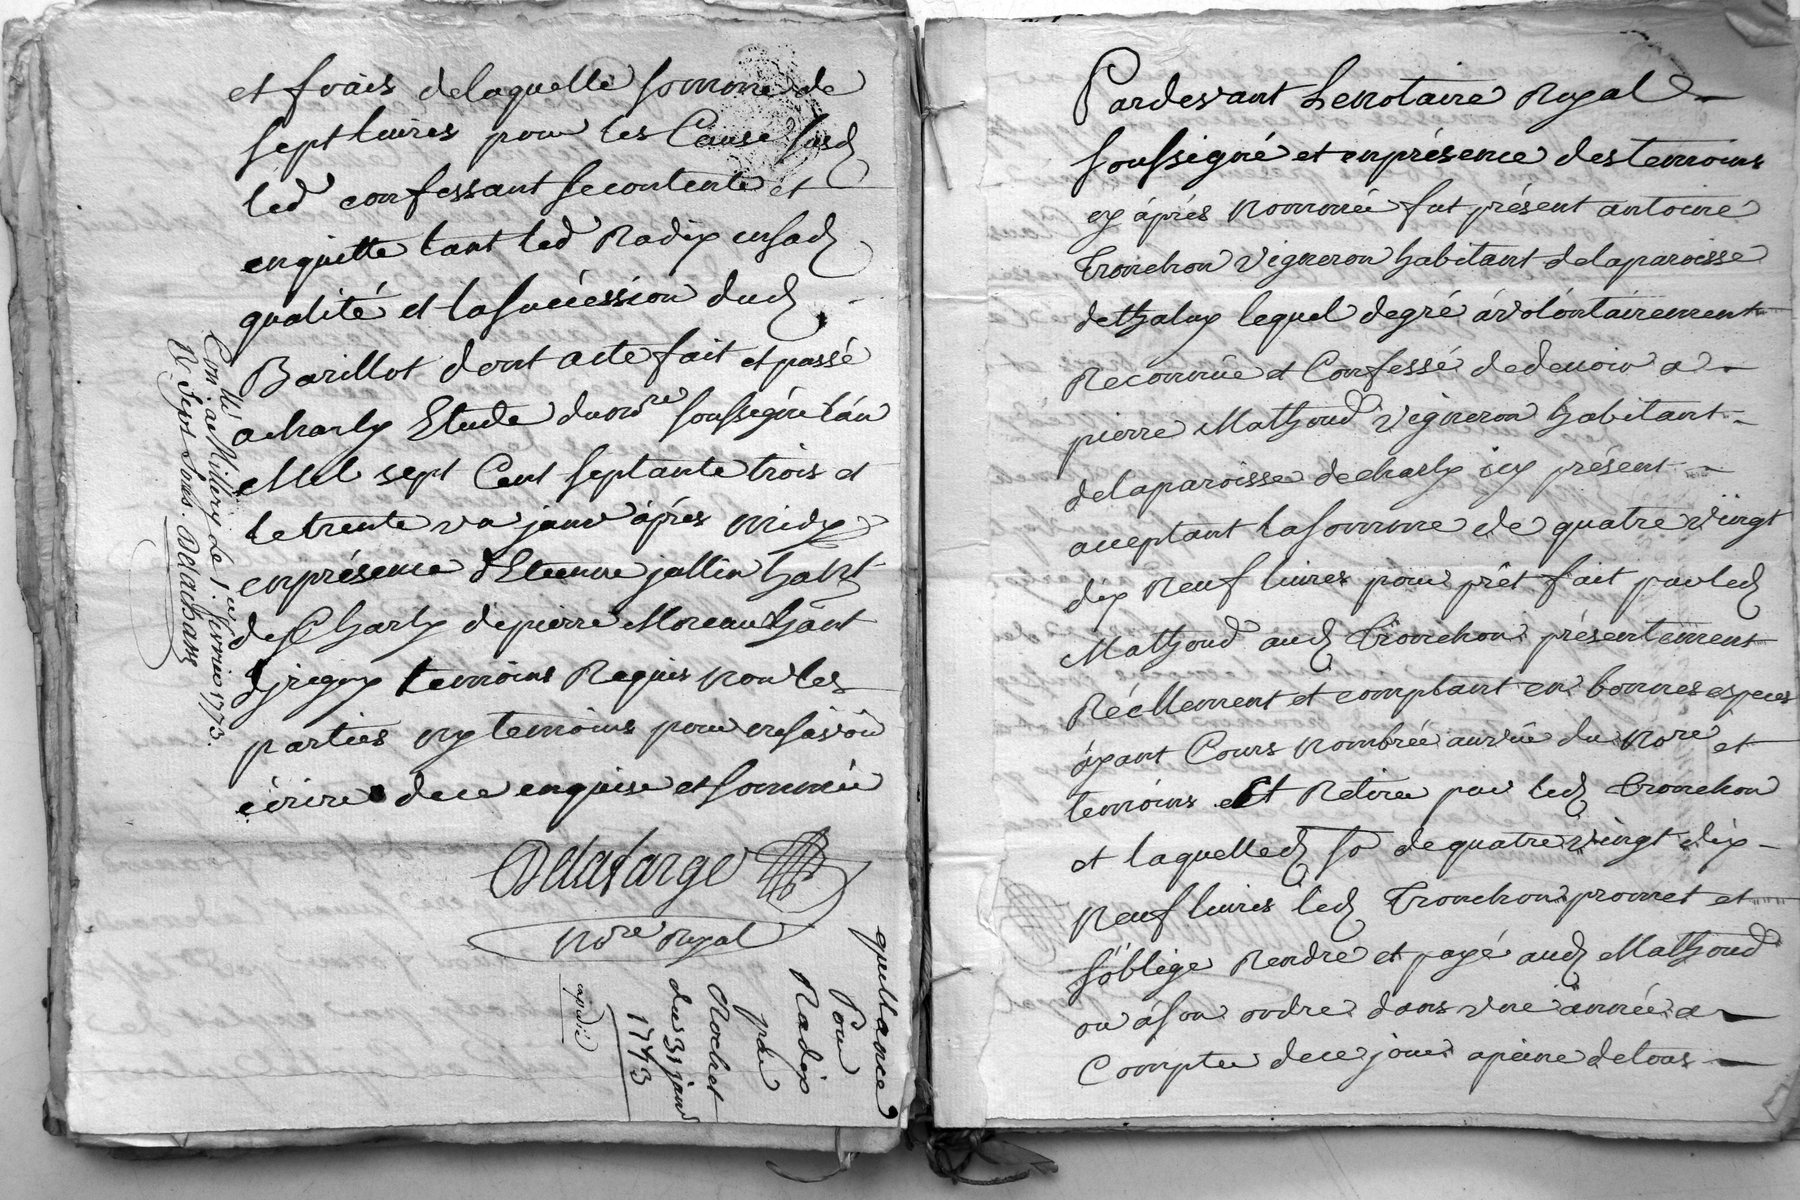 et frais delaquelle somme de
sept livres pour les Cause susd
led confessant se contente et
enquitte tant led Radix ensad
qualité et la succession dud
Barillot dont acte fait et passé
a charly Etude du nore soussigné l'an
Mil sept Cent septante trois et
le trente un janv après midy
en présence d'Etienne jallin habt
de Charly de pierre Moreau hânt
grigny temoins Requis non les
parties ny temoins pour ne savoir
écrire de ce enquise et sommée
Delafarge
Nore Royal
Con.llé a Millery le 1.er fevrier 1773.
R. Sept Sous. Delachasse
quittance
Pour
Radix
pour
Rochet
du 31 janv
1773
expédié
Pardevant Le notaire Royal
soussigné et en présence des temoins
cy après nommée fut présent antoine
Tronchon Vigneron habitant de la paroisse
de thalux lequel de gré à volontairement
Reconnue et Confessé de devoir a
pierre Mathoud Vigneron habitant
de la paroisse de charly icy présent
acceptant la somme de quatre vingt
dix Neuf livres pour prêt fait par led
Mathoud aud Tronchon présentement
Réellement et comptant en bonnes especes
ayant Cours nombrée au vue du Nore et
temoins et Retirée par led Tronchon
et laquelled so de quatre vingt dix
Neuf livres led Tronchon promet et
s'oblige Rendre et payé aud Mathoud
ou à son ordre dans une année a
Compter de ce jour a peine de tous